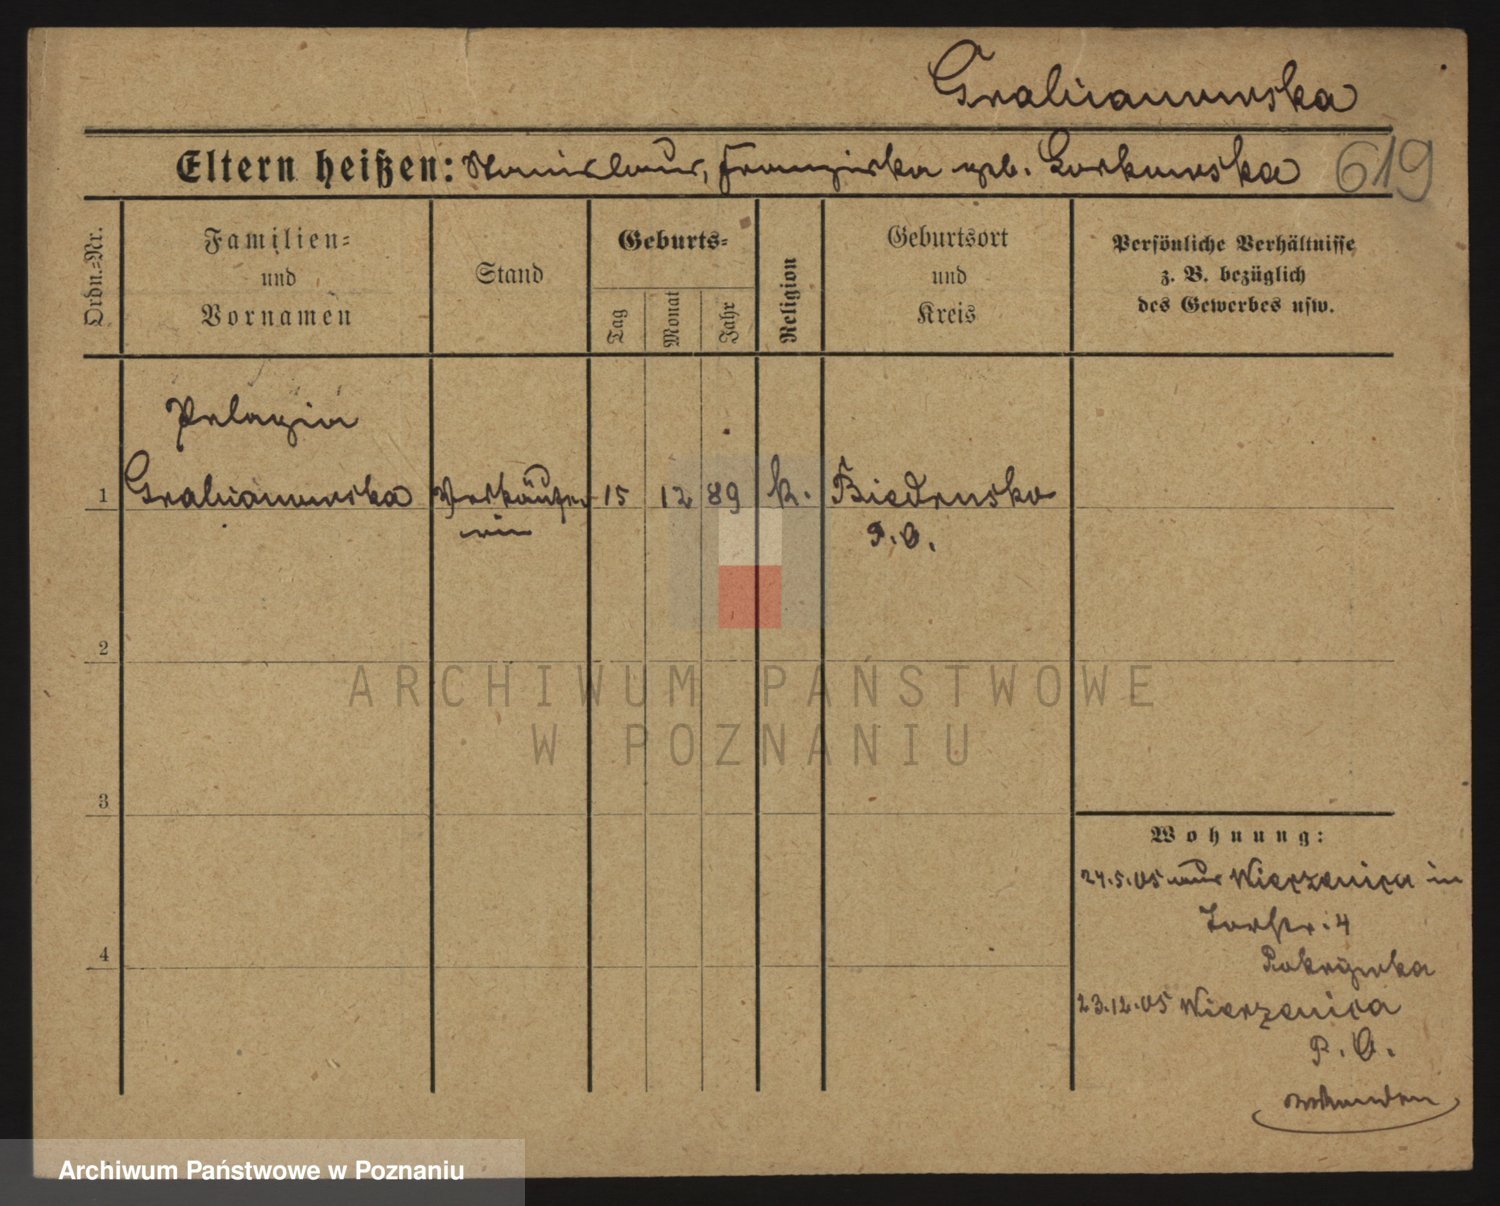 Grabianowska
Eltern heißen: Stanislaus, Franziska geb. Borkowska 619
Ordn.=Nr.
Familien=
und
Vornamen
Stand
Geburts=
Tag
Monat
Jahr
Religion
Geburtsort
und
Kreis
Persönliche Verhältnisse
z. B. bezüglich
des Gewerbes usw.
Pelagia
1 Grabianowska Verkäufe 15 12 89 k. Biedrusko
rin P. O.
2
3
4
Wohnung:
24.5.05 aus Wierzenica in
Torstr. 4
23.12.05 Wierzenica
P. O.
ARCHIWUM PAŃSTWOWE
W POZNANIU
Archiwum Państwowe w Poznaniu